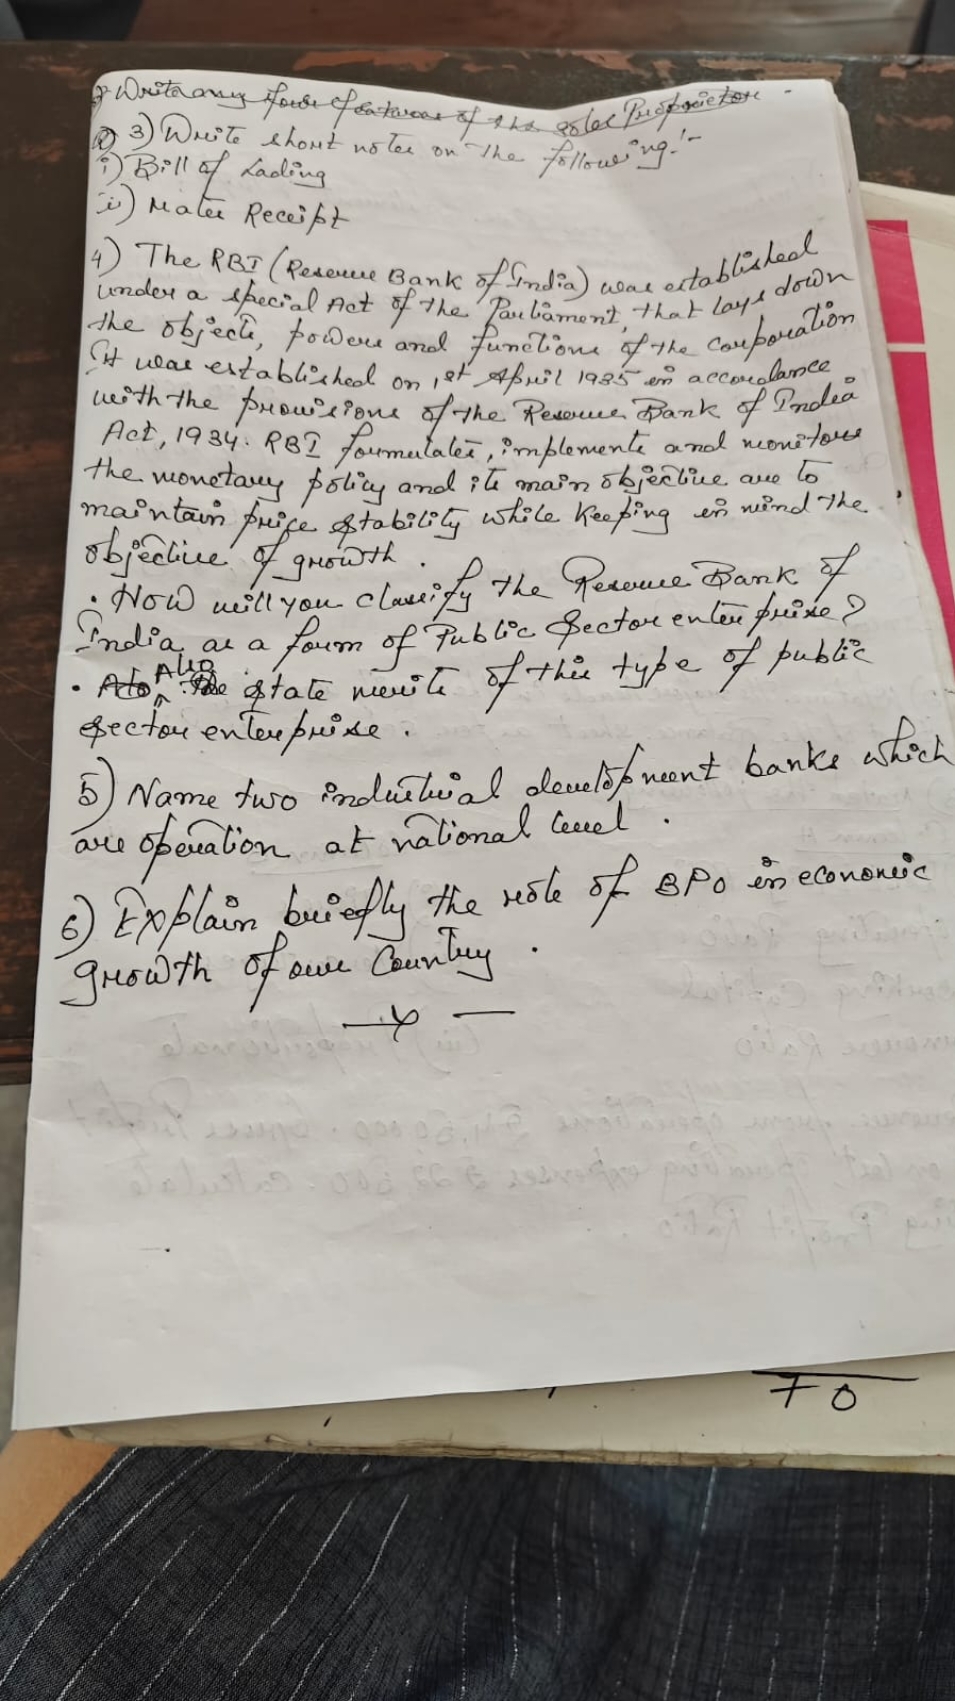 Write any four features of the sole Proprietor.
Q 3) Write short notes on the following:-
i) Bill of Lading
ii) Mates Receipt
4) The RBI (Reserve Bank of India) was established
under a special Act of the Parliament, that lays down
the objects, powers and functions of the corporation
It was established on 1st April 1935 in accordance
with the provisions of the Reserve Bank of India
Act, 1934. RBI formulates, implements and monitors
the monetary policy and its main objective are to
maintain price stability while keeping in mind the
objective of growth.
• How will you classify the Reserve Bank of
India as a form of Public Sector enterprise?
• Also state merits of this type of public
sector enterprise.
5) Name two industrial development banks which
are operation at national level.
6) Explain briefly the role of BPO in economic
growth of our Country.
70